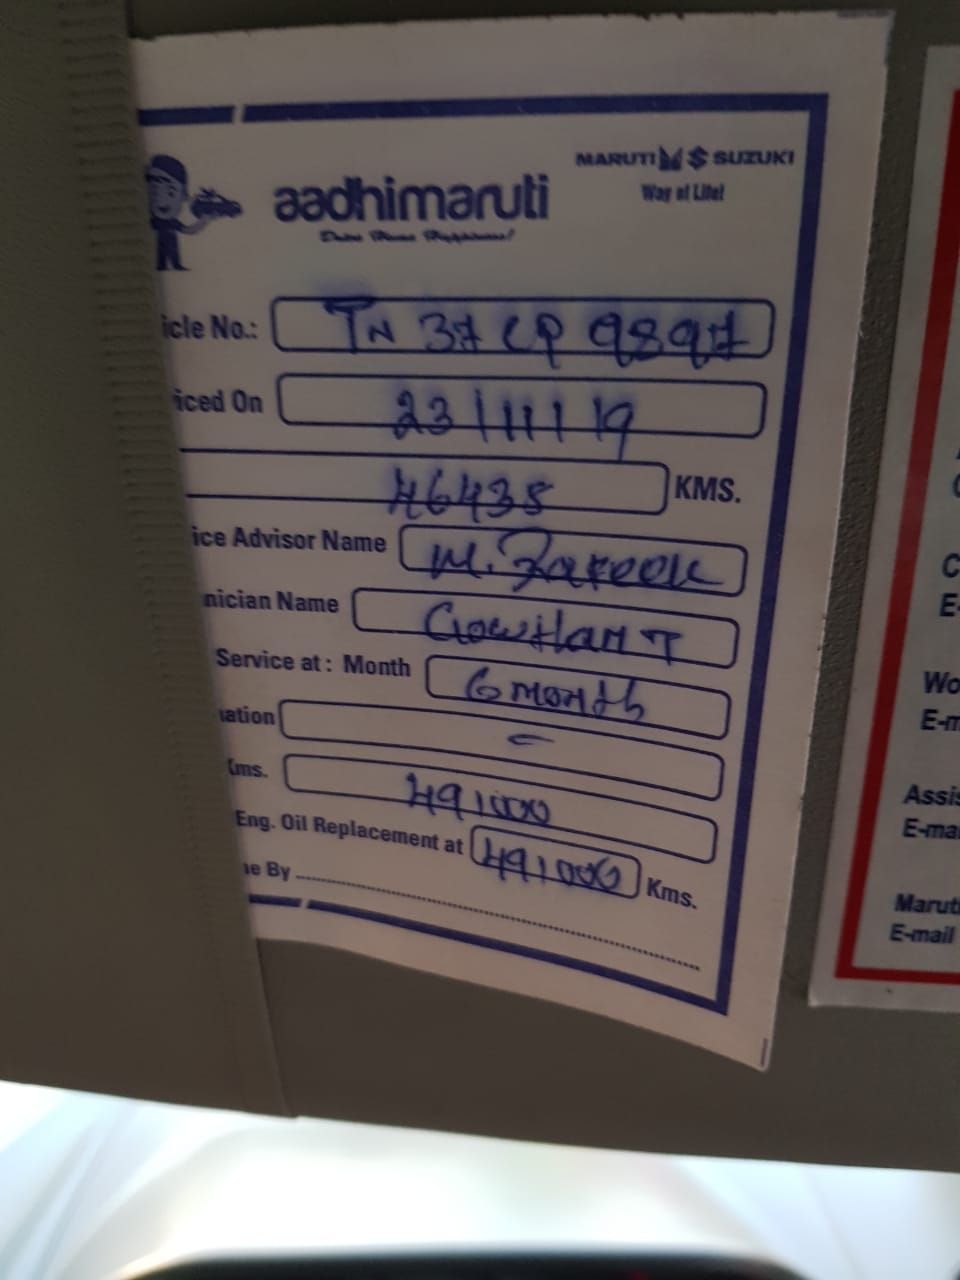 MARUTI SUZUKI
Way of Life!
aadhimaruti
icle No.: TN 37 CP 9897
iced On 23/11/19
46435 KMS.
ice Advisor Name M.
nician Name Gowtham T
Service at: Month 6 month
nation -
Kms. 491000
Eng. Oil Replacement at 491000 Kms.
ne By
C
E-
Wo
E-m
Assis
E-mai
Marut
E-mail